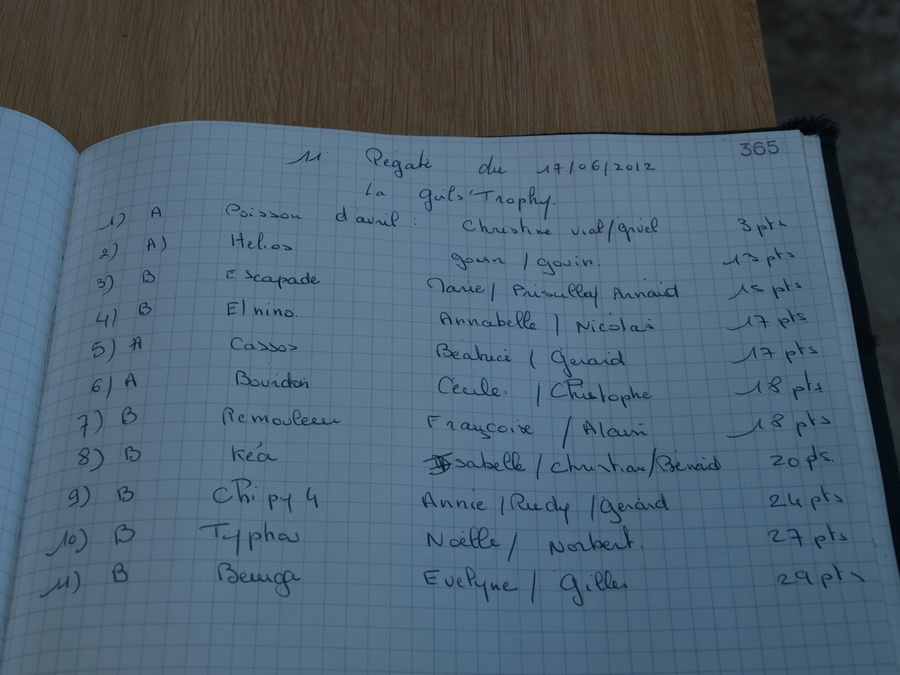 365
11. Régate du 17/06/2012
La girls'Trophy.
1) A Poisson d'avril : Christine vial/grivel 3 pts
2) A) Helios gouin / gouin. 13 pts
3) B Escapade Marie / Priscilla / Arnaud 15 pts
4) B El nino. Annabelle / Nicolas 17 pts
5) A Cassos Béatrice / Gérard 17 pts
6) A Cécile. / Christophe 18 pts
7) B Remouleur Françoise / Alain 18 pts
8) B Kéa Isabelle / Christian / Bénaid 20 pts
9) B Chipy 4 Annie / Rudy / Gérard 24 pts
10) B Typhos Noëlle / Norbert. 27 pts
11) B Evelyne / Gilles 29 pts